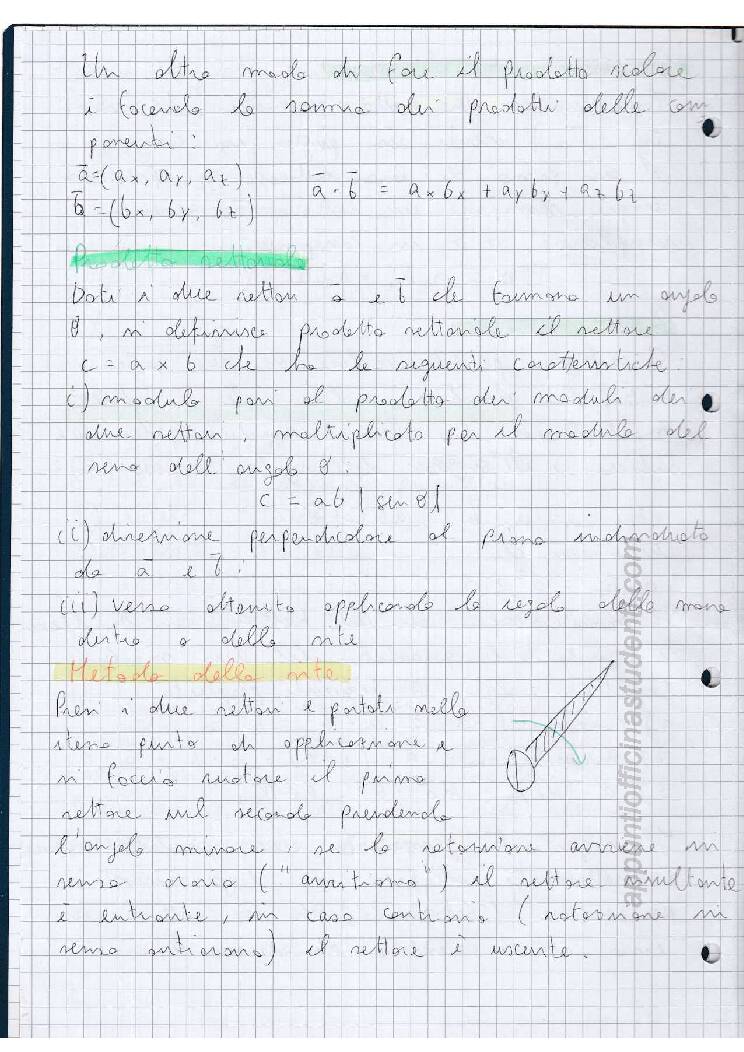 Un altro modo di fare il prodotto scalare
è facendo la somma dei prodotti delle com
ponenti:
ā=(ax, ay, az)
b̄=(bx, by, bz)
ā · b̄ = axbx + ayby + azbz
Prodotto vettoriale
Dati i due vettori ā e b̄ che formano un angolo
θ, si definisce prodotto vettoriale il vettore
c = a x b che ha le seguenti caratteristiche.
i) modulo pari al prodotto dei moduli dei
due vettori, moltiplicato per il modulo del
seno dell'angolo θ.
c = ab |sin θ|
(ii) direzione perpendicolare al piano individuato
da ā e b̄.
(iii) verso ottenuto applicando la regola della mano
destra o della vite
Metodo della vite
Presi i due vettori e portati nello
stesso punto di applicazione e
si faccia ruotare il primo
vettore sul secondo prendendo
l'angolo minore, se la rotazione avviene in
senso orario ("avvitiamo") il vettore risultante
è entrante, in caso contrario (rotazione in
senso antiorario) il vettore è uscente.
appuntiofficinastudenti.com